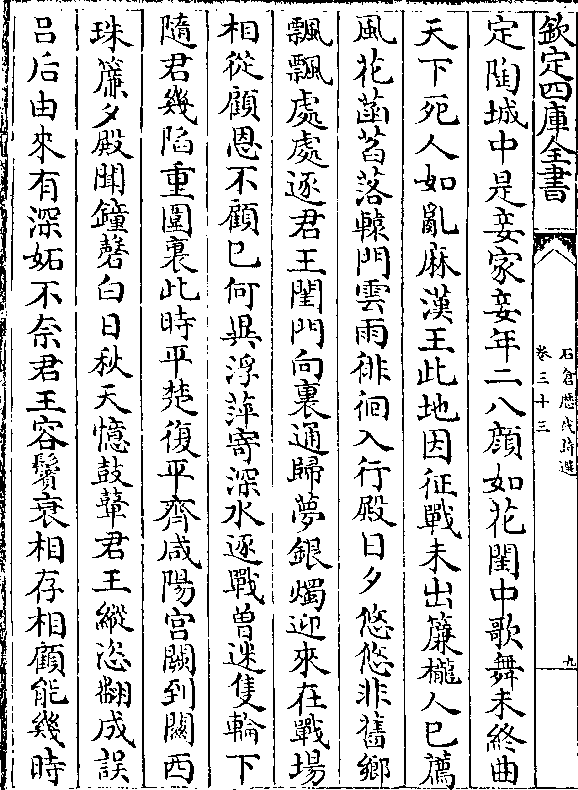 欽定四庫全書
石倉歷代詩選
卷三十三
九
定陶城中是妾家妾年二八顔如花閨中歌舞未終曲
天下死人如亂麻漢王此地因征戰未出簾櫳人已薦
風花菡萏落轅門雲雨徘徊入行殿日夕悠悠非舊鄉
飄飄處處逐君王閨門向裏通歸夢銀燭迎來在戰場
相從顧恩不顧已何異浮萍寄深水逐戰曽迷隻輪下
隨君幾陷重圍裏此時平楚復平齊咸陽宫闕到闗西
珠簾夕殿聞鐘磬白日秋天憶鼓鼙君王縱恣翻成誤
吕后由來有深妬不奈君王容鬢衰相存相顧能幾時